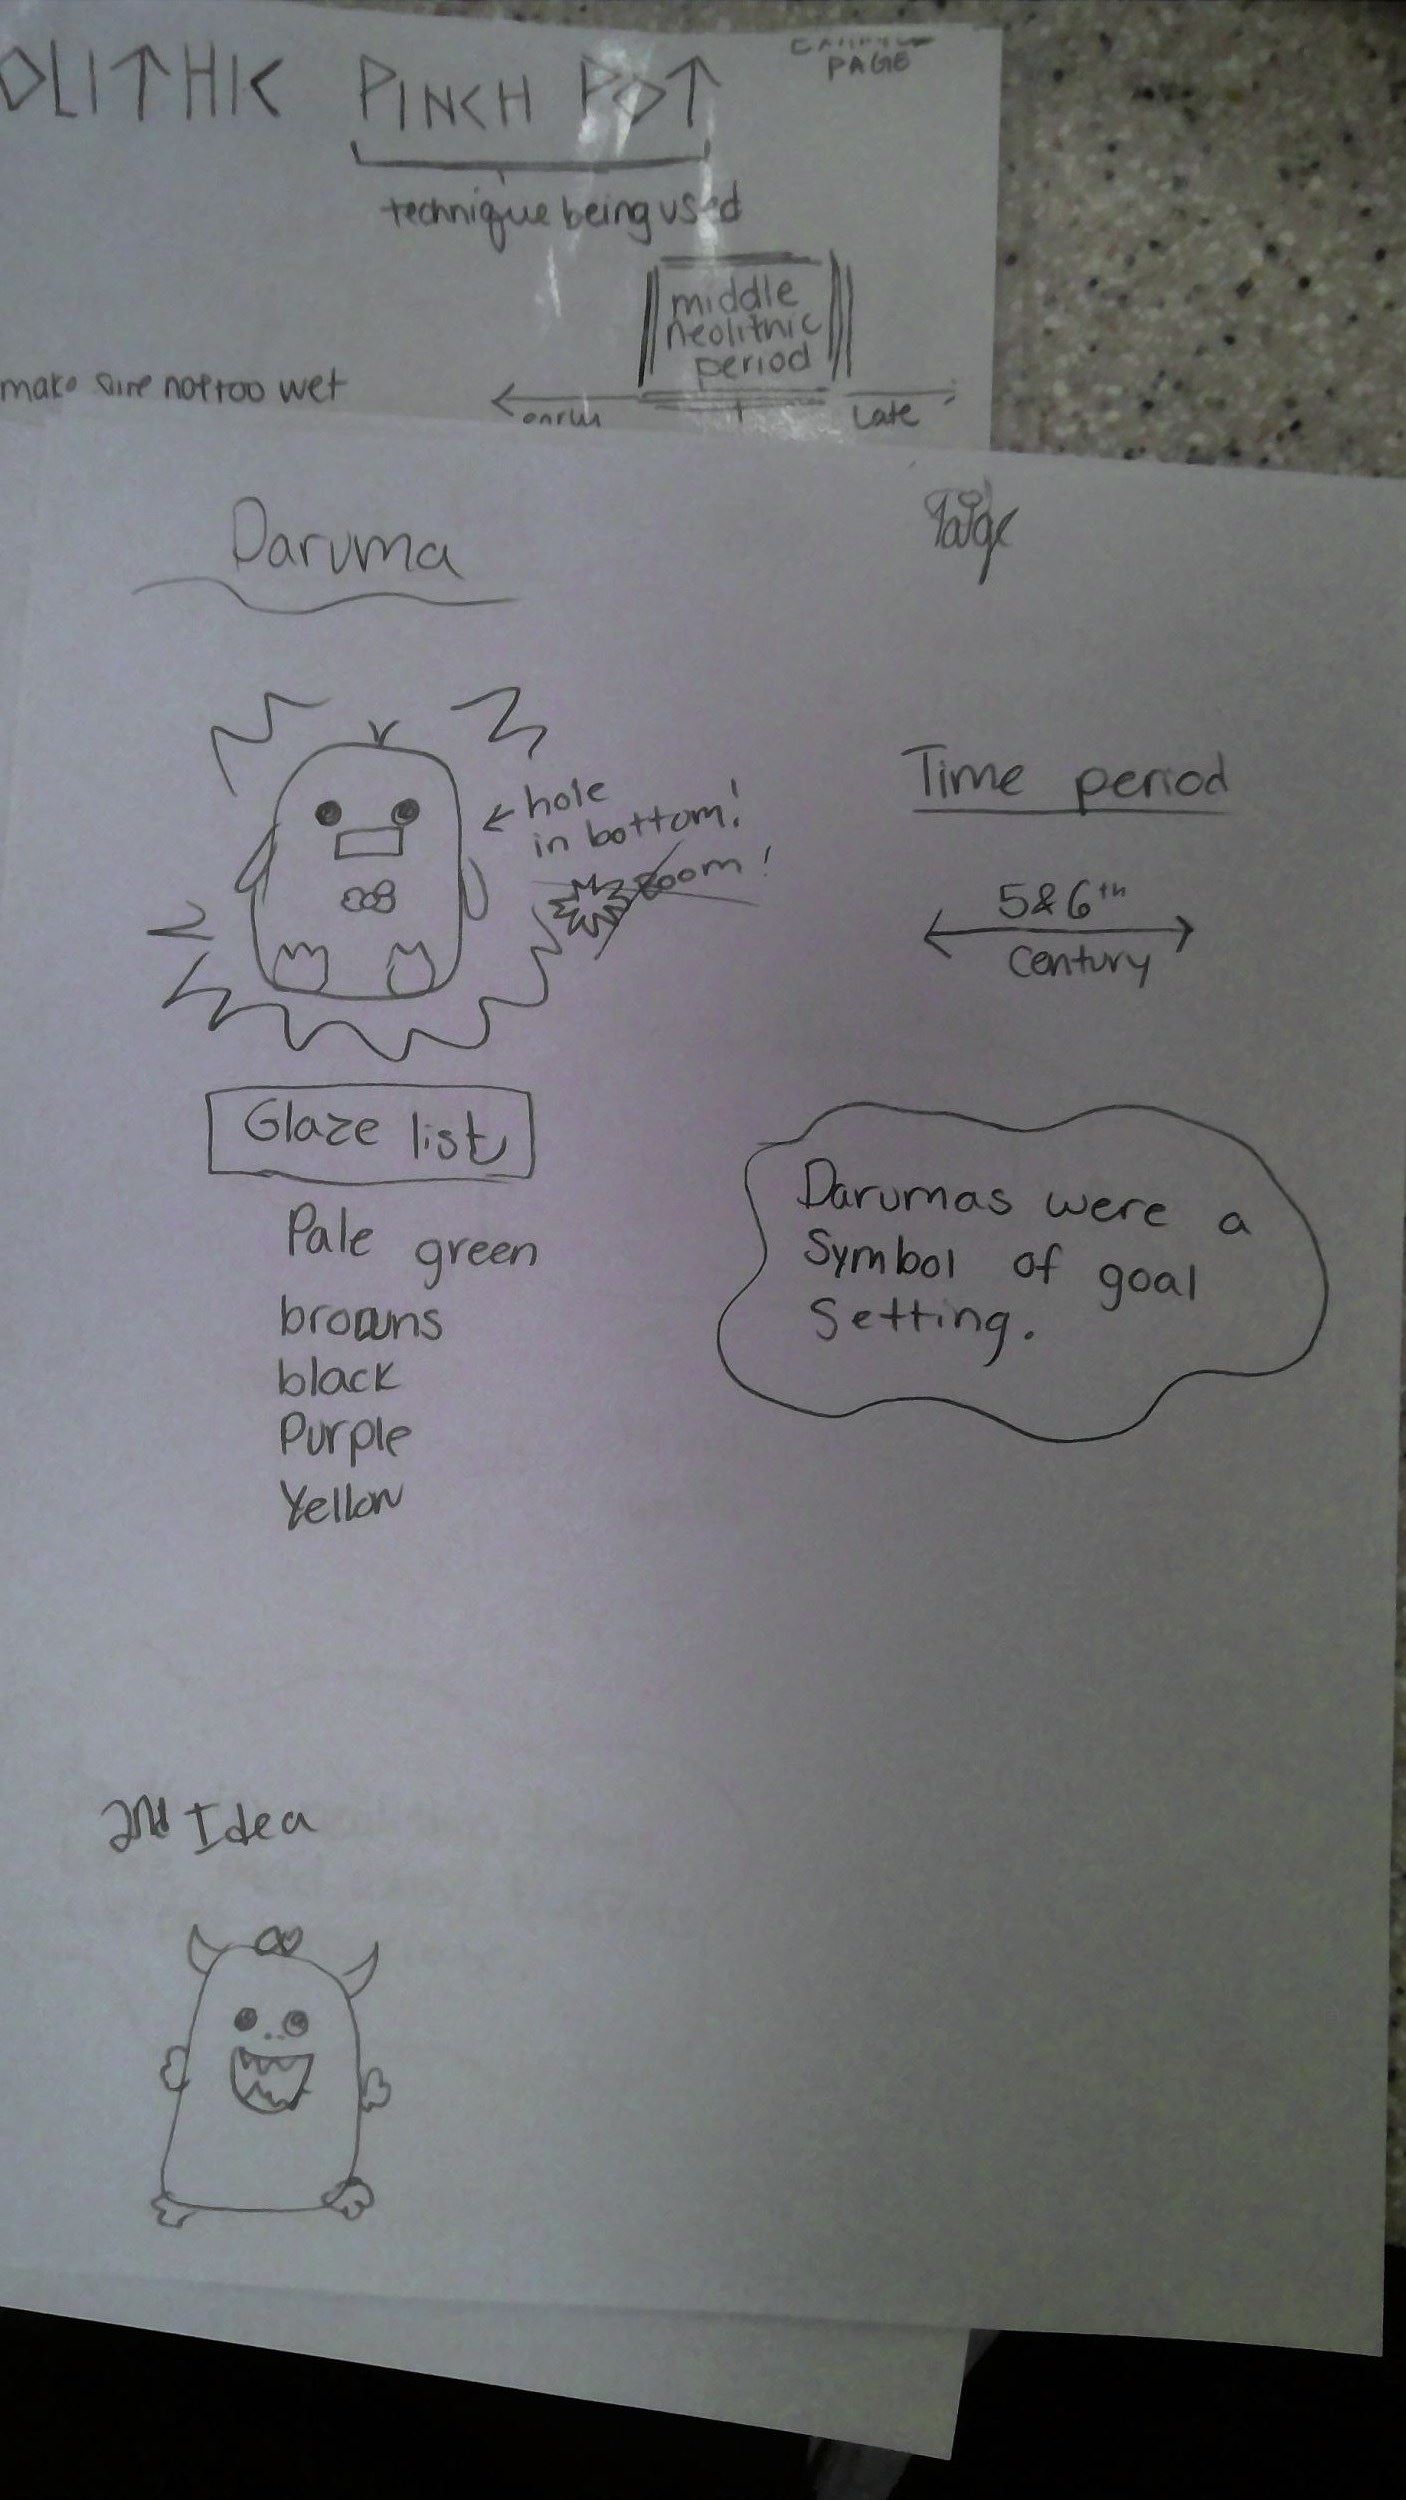 OLITHIC PINCH POT
PAGE
technique being used
middle
neolithic
period
make sure not too wet
early
Late
Daruma
Time period
hole
in bottom!
5&6th
Century
Glaze list
Pale green
browns
black
Purple
Yellow
Darumas were a
Symbol of goal
Setting.
2nd Idea